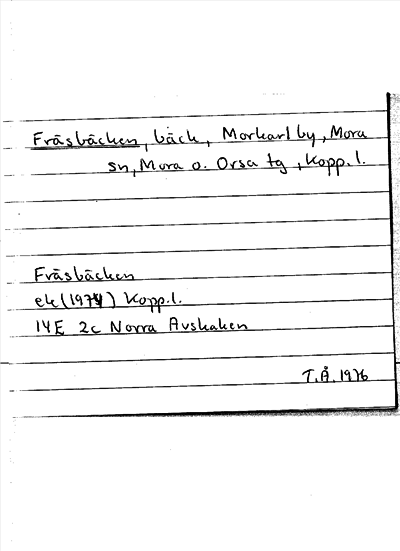 Fräsbäcken, bäck, Morkarlby, Mora
sn, Mora o. Orsa tg, Kopp.l.
Fräsbäcken
ek (1974) Kopp.l.
14E 2c Norra Avskaken
T.Å. 1976